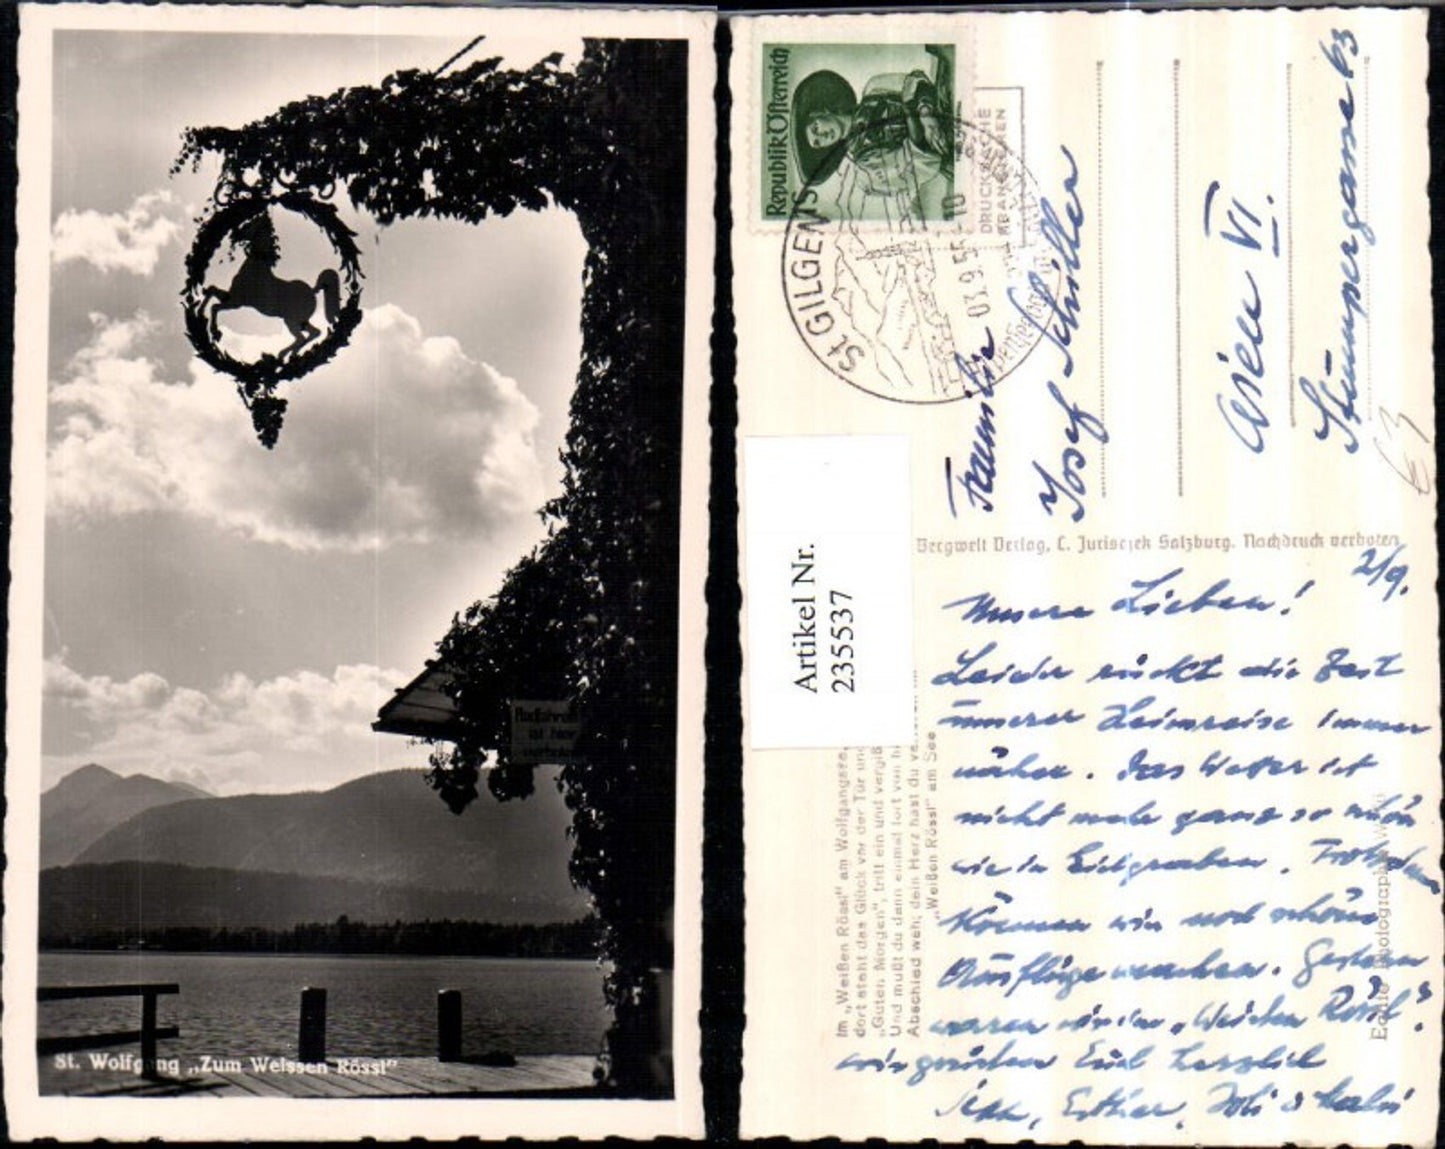 Radfahren
ist hier
verboten
St. Wolfgang „Zum Weissen Rössl“
Republik Österreich
St. GILGEN
03.9.55-10
DRUCKSACHE
Familie
Josef Schiller
Wien VI.
Stumpergasse 63
€3
Artikel Nr.
235537
Bergwelt Verlag, C. Jurischek Salzburg. Nachdruck verboten
2/9.
Unsere Lieben!
Leider rückt die Zeit
unserer Heimreise immer
näher. Das Wetter ist
nicht mehr ganz so schön
wie in Eichgraben. Trotzdem
können wir noch schöne
Ausflüge machen. Gestern
waren wir im „Weißen Rössl“.
wir grüßen Euch herzlich
Esther,
Im „Weißen Rössl“ am Wolfgangsee,
dort steht das Glück vor der Tür und
„Guten Morgen“, tritt ein und vergiß
Und mußt du dann einmal fort von
Abschied weh; dein Herz hast du
„Weißen Rössl“ am See